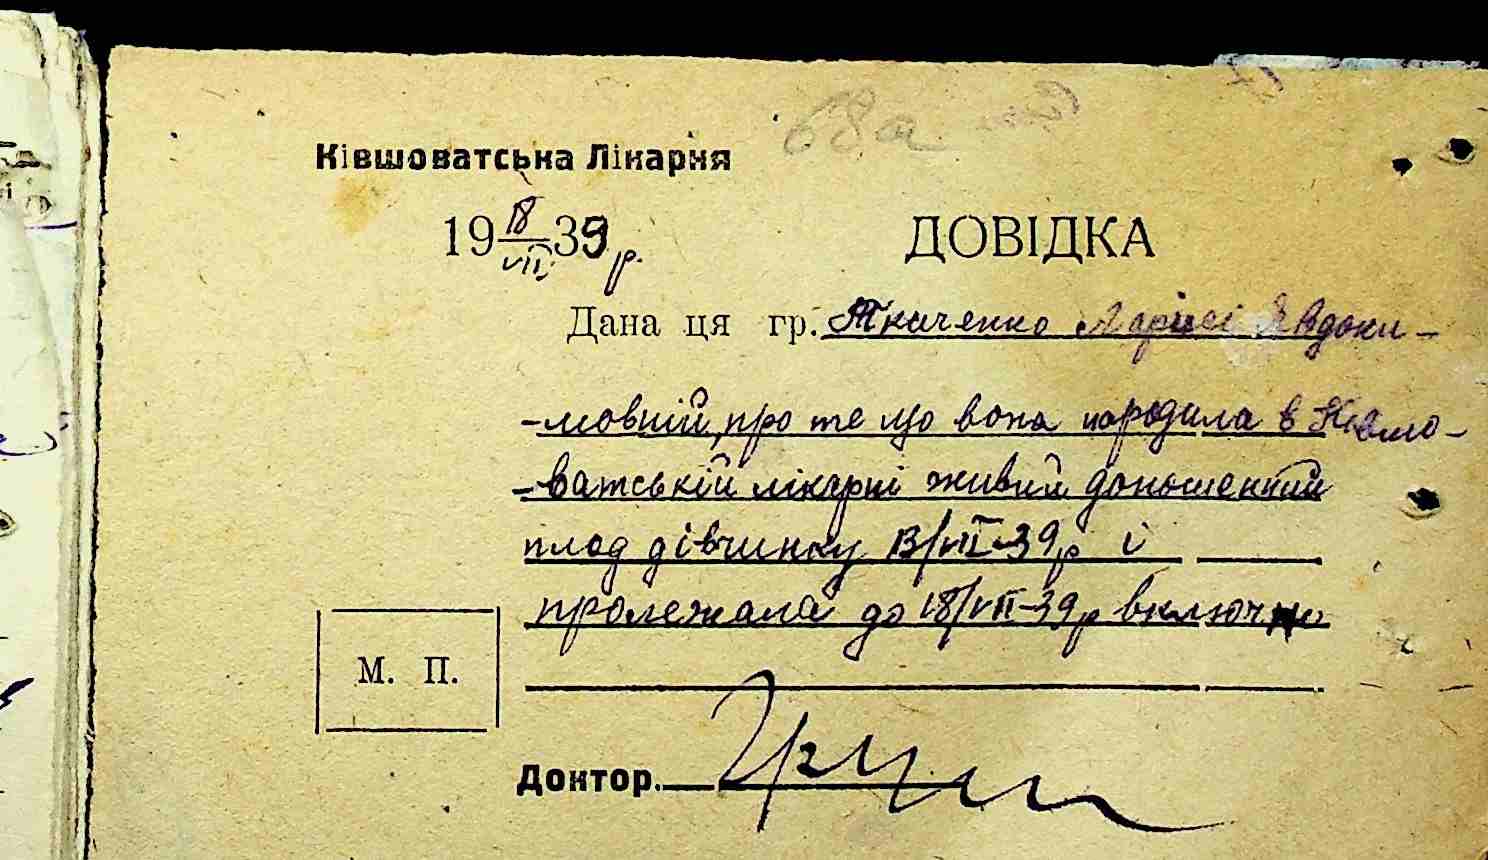 68а
Ківшоватська Лікарня
19 18/VII 39 р.
ДОВІДКА
Дана ця гр. Ткаченко Ларисі Явдоки-
-мовній, про те що вона породила в Ківшо-
-ватській лікарні живий доношенний
плод дівчинку 13/VII-39р і
пролежала до 18/VII-39р включно
М. П.
Доктор.